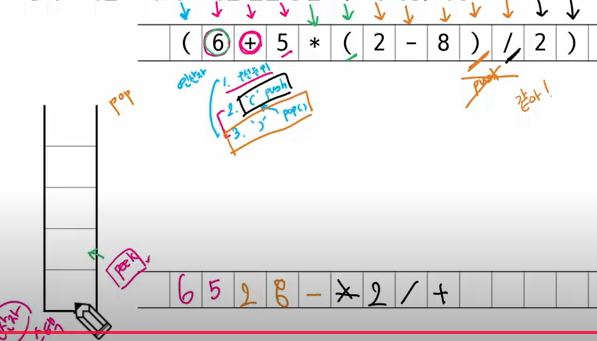 ( 6 + 5 * ( 2 - 8 ) / 2 )
연산자
1. 우선순위
2. '(' push
3. ')' pop()
push
같아!
pop
peek
6 5 2 8 - * 2 / +